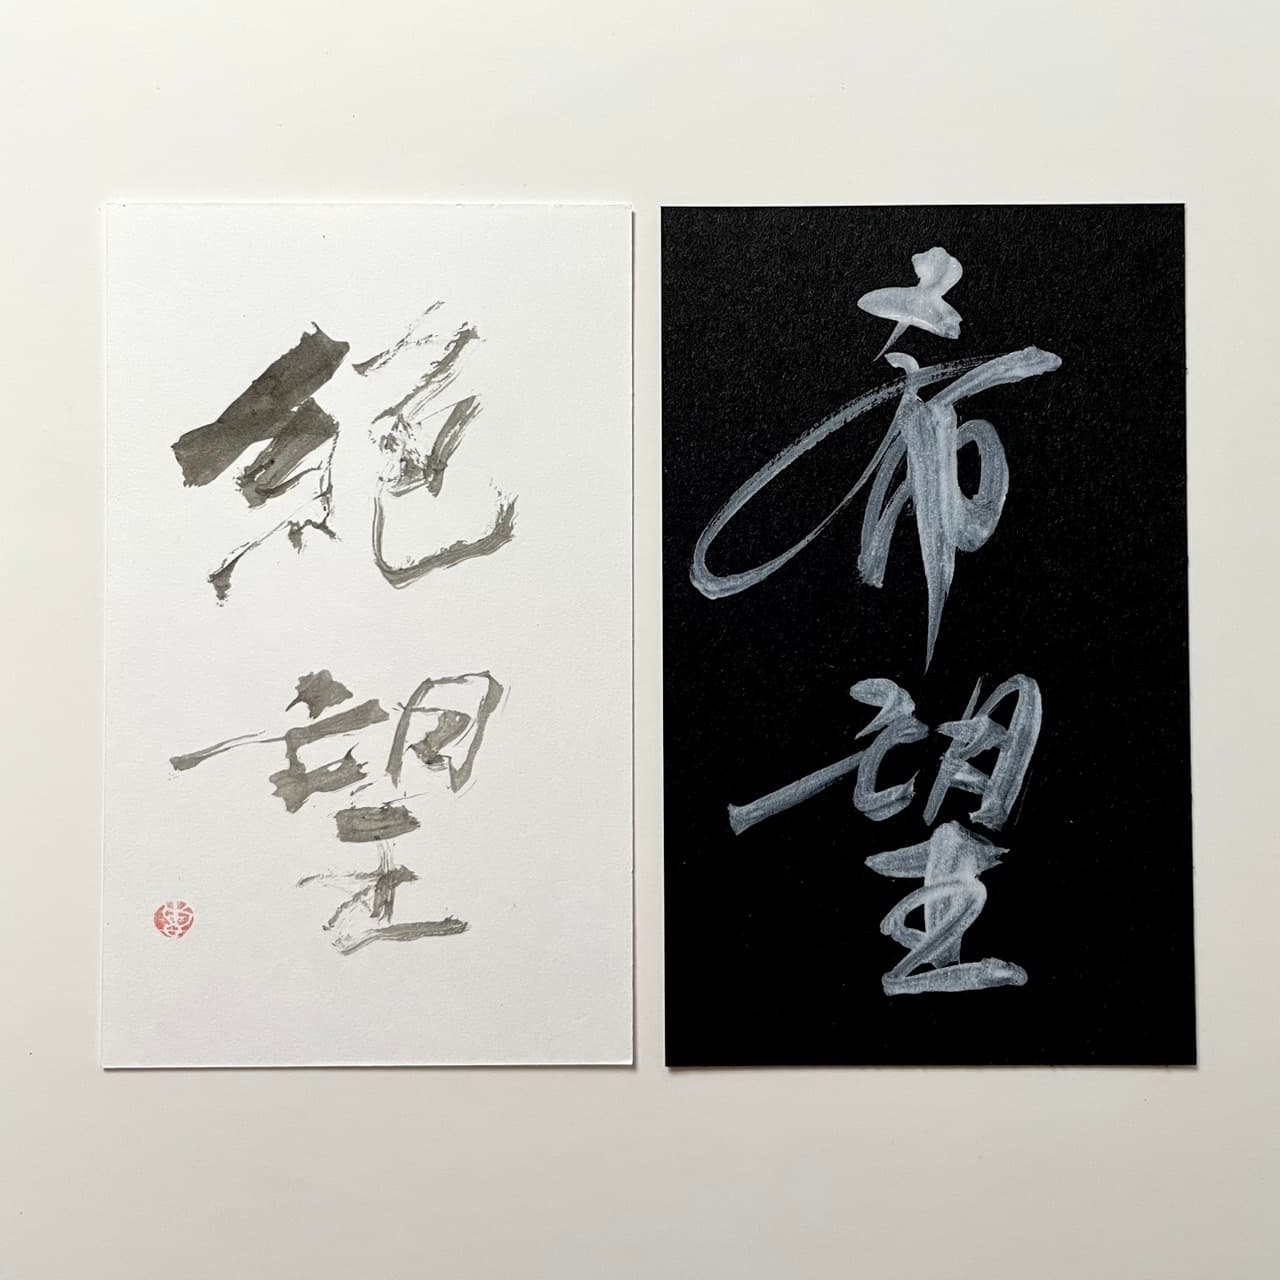 絶望
希望